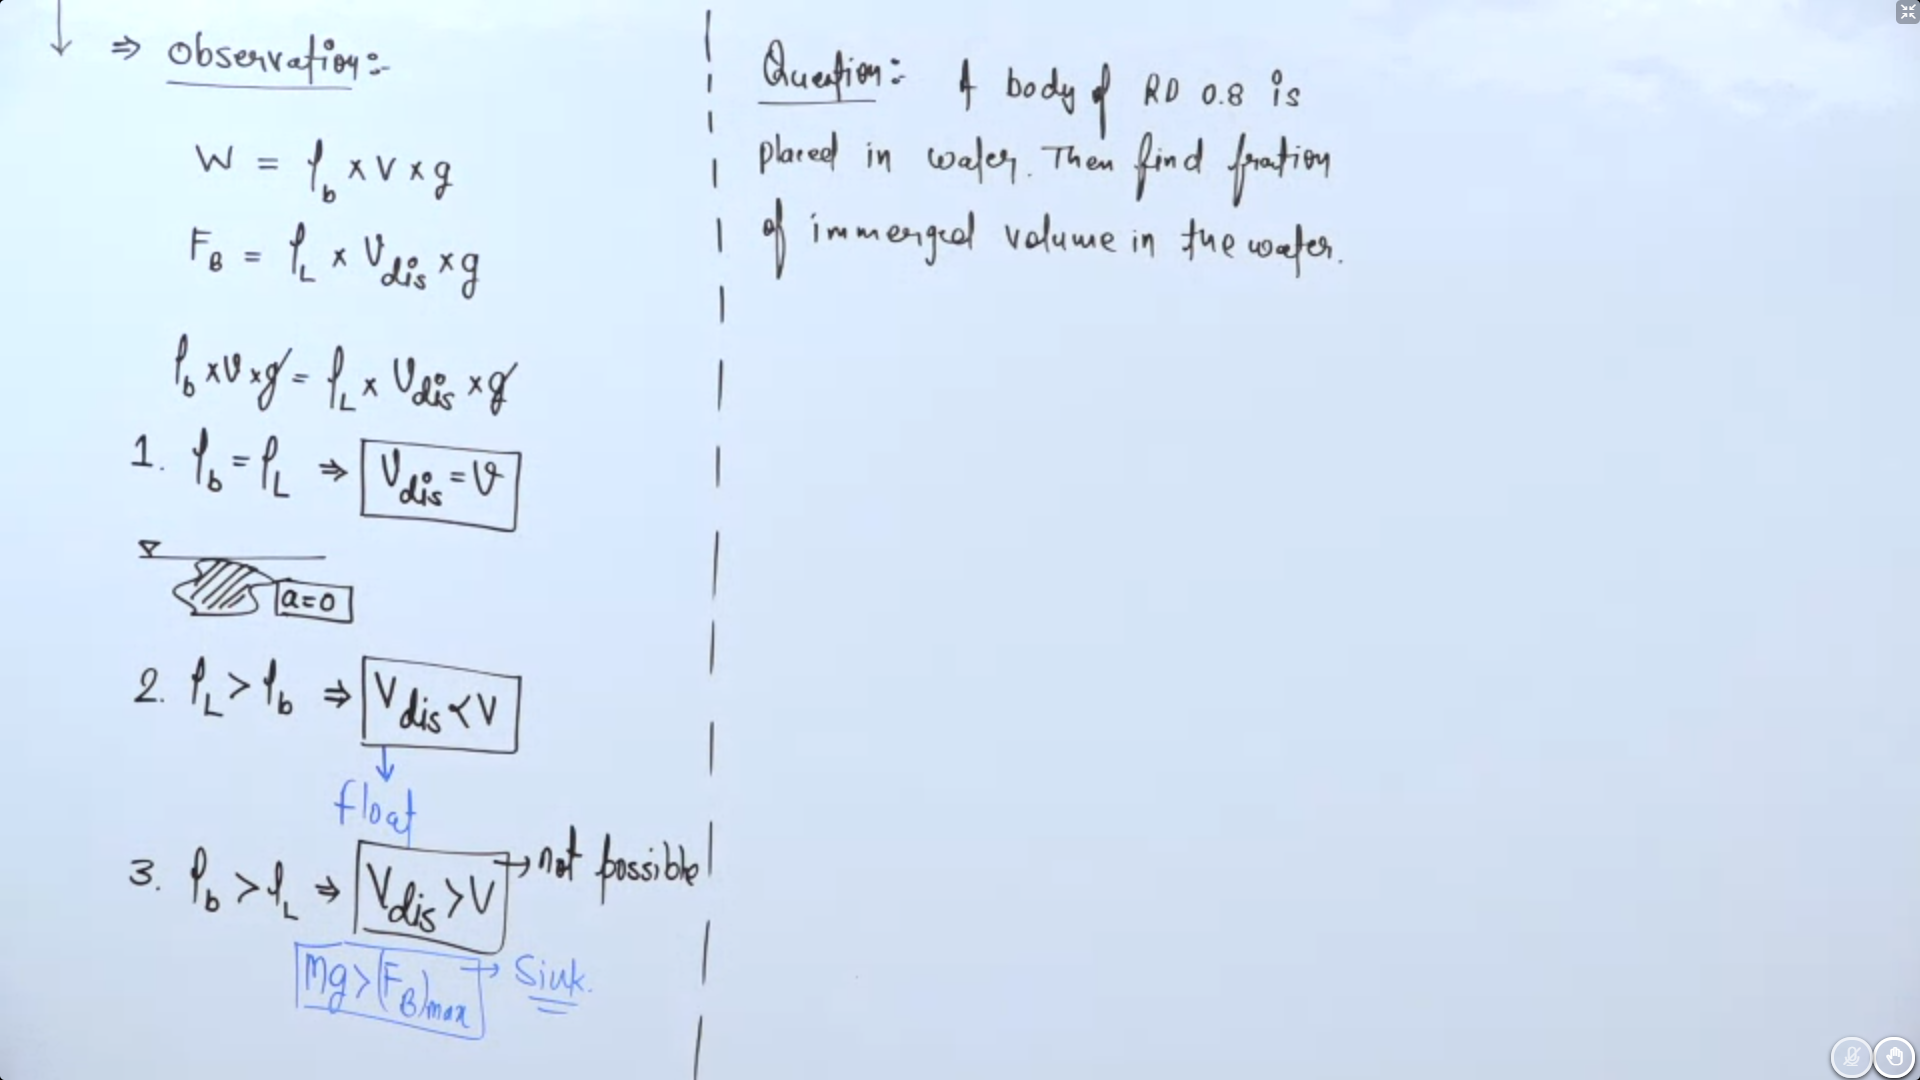 ⇒ Observation:-
W = ρ_b × V × g
F_B = ρ_L × V_dis × g
ρ_b × V × g = ρ_L × V_dis × g
1. ρ_b = ρ_L ⇒ V_dis = V
a=0
2. ρ_L > ρ_b ⇒ V_dis < V
float
3. ρ_b > ρ_L ⇒ V_dis > V → not possible
Mg > (F_B)max → Sink.
Question:- A body of RD 0.8 is
placed in water. Then find fration
of immerged volume in the water.